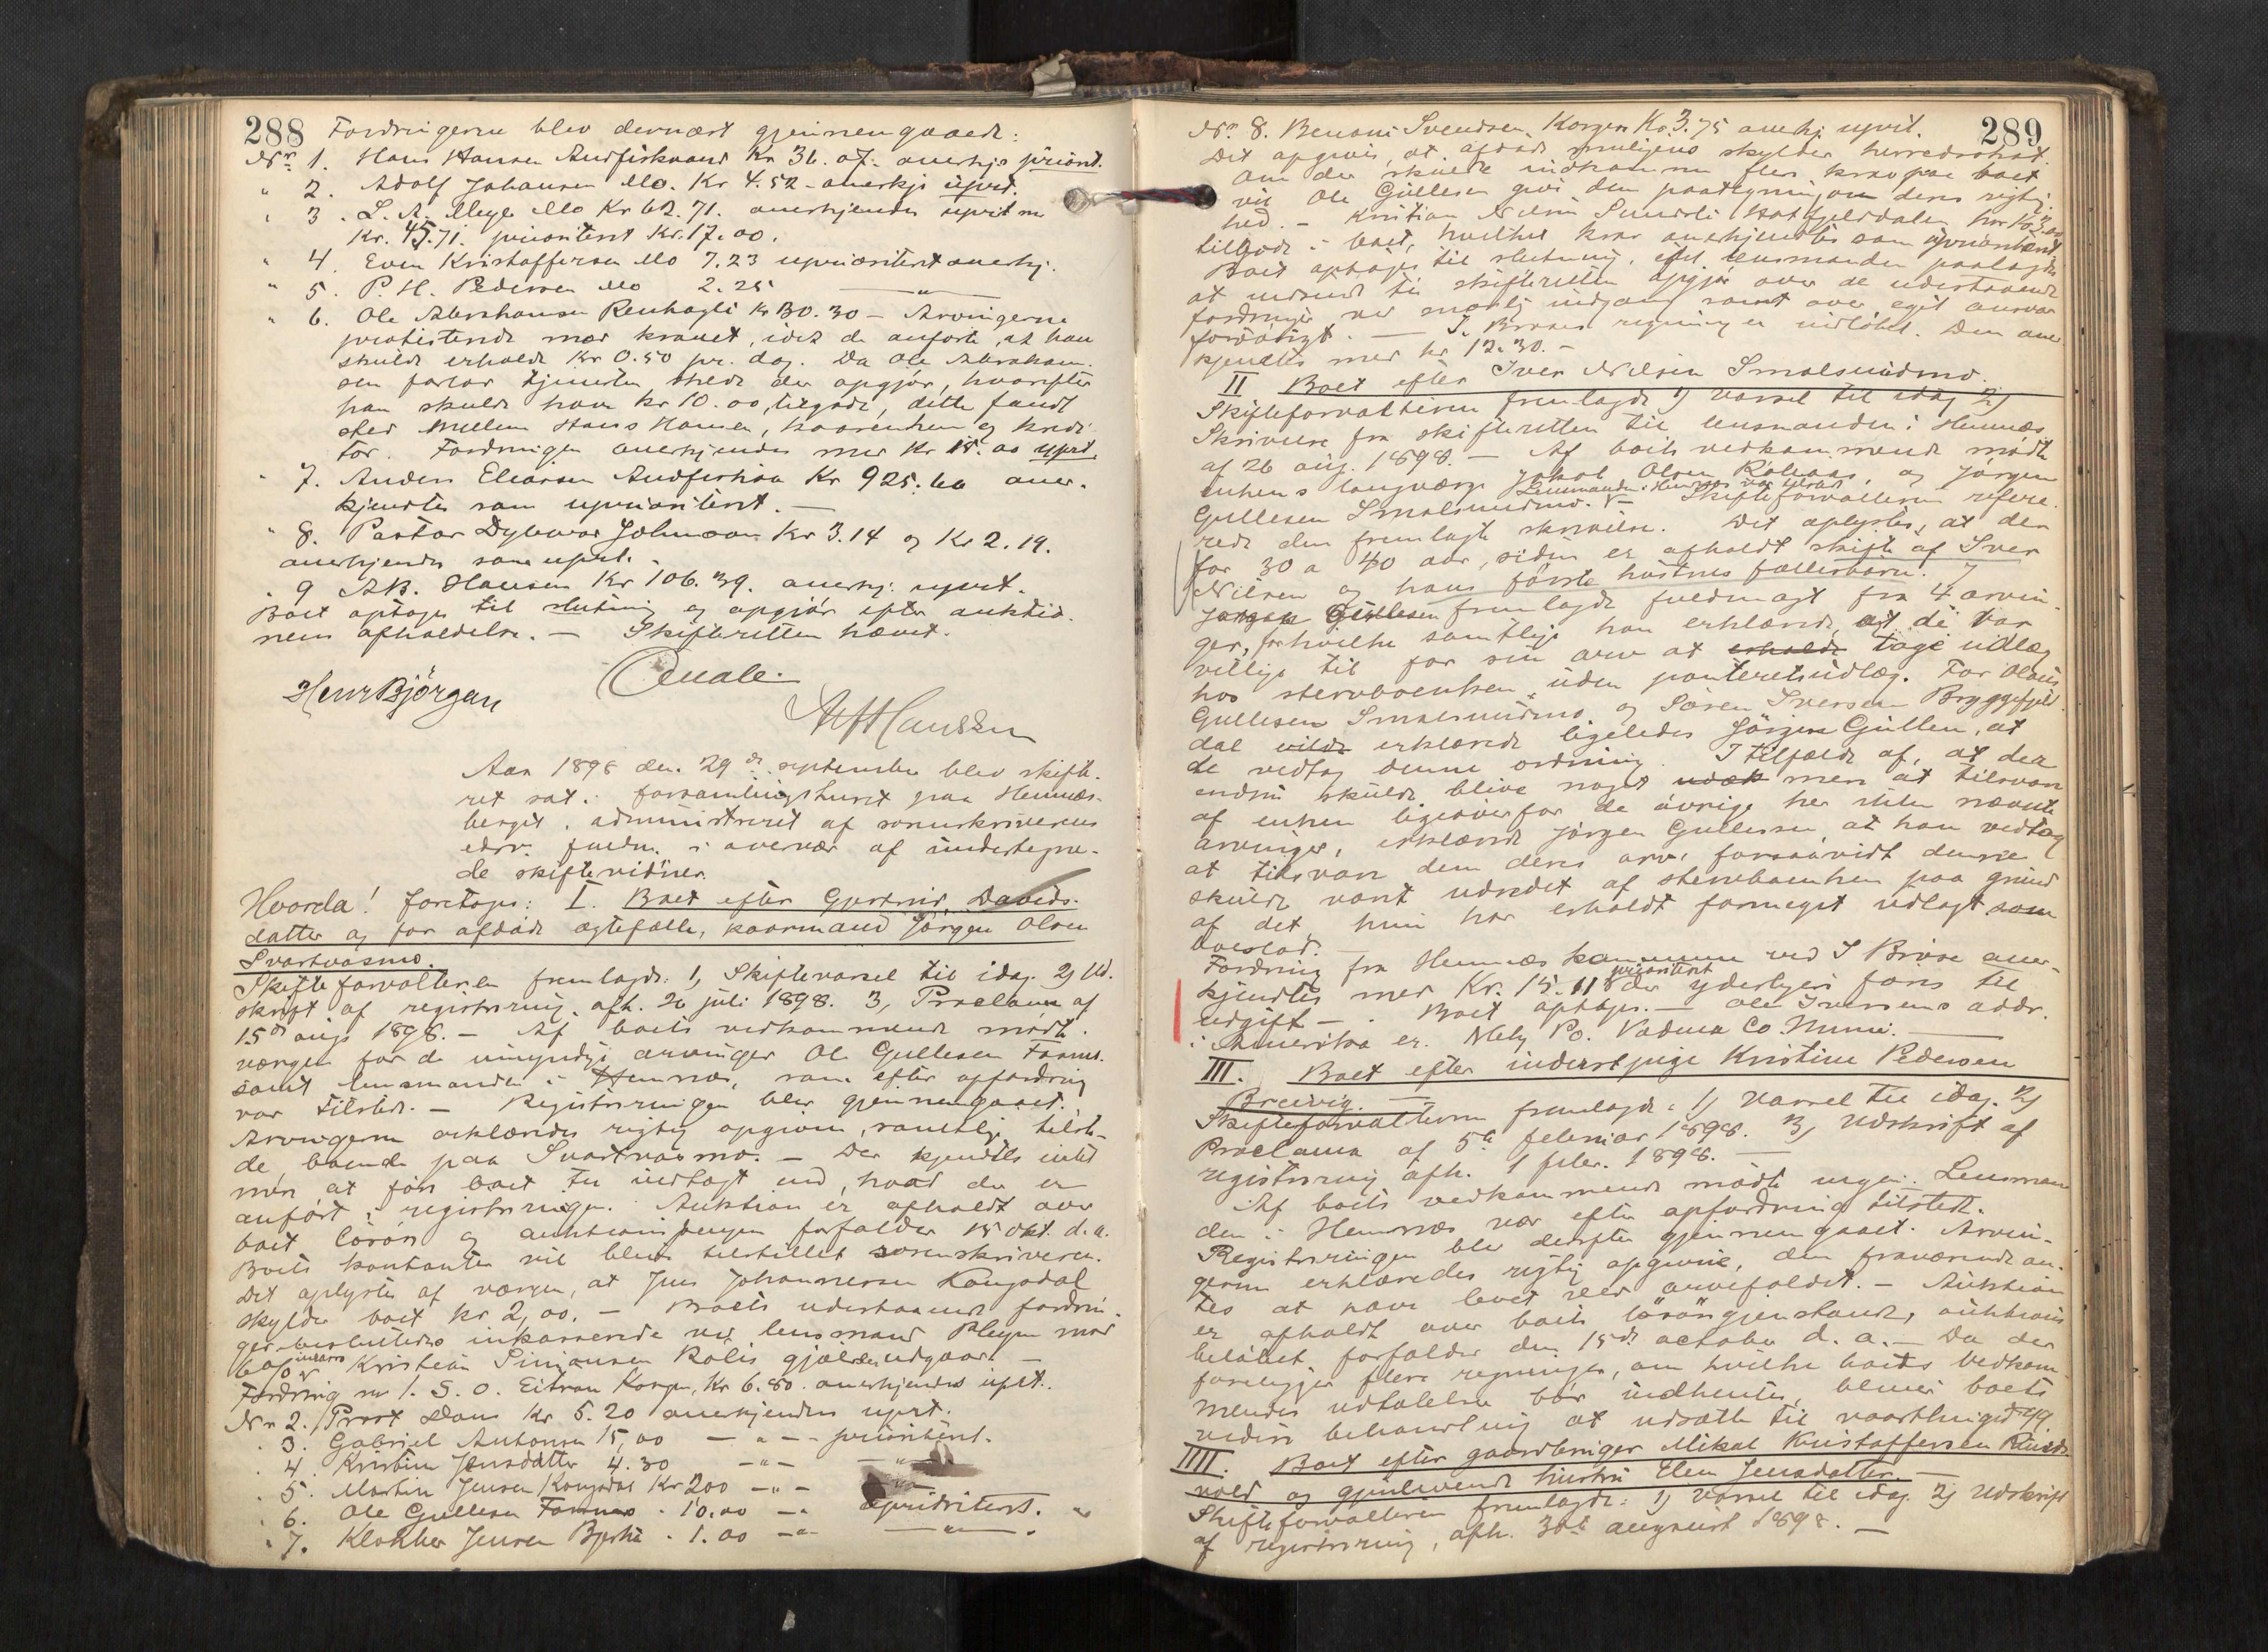 288 Fordringerne blev dernæst gjennemgaaede:
Nr 1. Hans Hansen Andfiskvand Kr 36.07. anerkjs priorit.
" 2. Adolf Johansen Mo. Kr 4.52 - anerkjs uprt.
" 3. L. A. Meyer Mo Kr 62.71. anerkjendes uprit m
Kr. 45.71. prioritert Kr. 17.00.
" 4. Even Kristoffersen Mo 7.23 uprioritert anerkj.
" 5. P. H. Pedersen Mo 2.25 — " —
" 6. Ole Abrahamsen Renhagli Kr 30.30 - Arvingerne
protesterede mod kravet, idet de anførte, at han
skulde erholde Kr 0.50 pr. dag. Da Ole Abraham-
sen forlod tjenesten skede der opgjør, hvorefter
han skulde have kr 10.00 tilgode, dette fandt
sted mellem Hans Hansen, kaarenken og kredi-
tor. Fordringen anerkjendes med Kr 15.00 uprt.
" 7. Anders Eliasen Andfiskaa Kr 925.60 aner-
kjendtes som uprioritert. —
" 8. Pastor Dybwad Johnson Kr 3.14 og Kr 2.19.
anerkjendes som uprt. -
" 9 A.B. Hansen Kr 106.39. anerkj. uprt.
Boet optages til slutning og opgjør efter auktio-
nens afholdelse. — Skifteretten hævet.
Henr Bjørgan
Qvale.
Alf Hanssen
Aar 1898 den 29de september blev skifte-
ret sat i forsamlingshuset paa Hemnæs-
berget, administreret af sorenskriverens
edsv. fuldm. i overvær af undertegne-
de skiftevidner.
Hvorda! foretoges: I. Boet efter Gjertrud Davids-
datter og før afdøde ægtefælle, kaarmand Jørgen Olsen
Svartvasmo.
Skifteforvalteren fremlagde: 1, Skiftevarsel til idag. 2) Ud-
skrift af registrering, afh. 26 juli 1898. 3, Proclama af
15de aug. 1898. — Af boets vedkommende mødte
værgen for de umyndige arvinger Ole Gullesen Famnes
samt lensmanden i Hemnes, som efter opfordring
var tilstede. — Registreringen blev gjennemgaaet.
Arvingerne erklæredes rigtig opgivne, samtlige tilste-
de, boende paa Svartvasmo. — Der kjendtes intet
mer at føre boet til indtægt end, hvad der er
anført i registreringen. Auktion er afholdt over
boet løsøre og auktionspengene forfalder 15 okt. d.a.
Boets kontanter vil blive tilstillet sorenskriveren.
Det oplystes af værgen, at Jens Johannesen Kangsdal
skylder boet kr 2,00. — Boets udestaaende fordrin-
ger besluttedes inkasserede ved lensmand Kleven mod
6% inkasso Kristian Simonsen Kolis gjæld udgaar. —
Fordring nr 1. S. O. Eitran Korgen, Kr 6.80. anerkjendes uprt.
Nr 2. Prost Dons Kr 5.20 anerkjendes uprt.
" 3. Gabriel Antonsen 15,00 — " — prioritert.
" 4. Kristine Jensdatter 4.30 — " — — " —
" 5. Martin Jensen Kangsdal Kr 2.00 — " —
" 6. Ole Gullesen Famnes " 10.00 — " uprioritert.
" 7. Klokker Jensen Bjerka " 1.00 — " — — " —
289
Nr. 8. Benoni Svendsen, Korgen Kr. 3.75 anerkj. uprit.
Det opgives, at afdøde muligens skylder herredsskat.
Om der skulde indkomme flere krav paa boet
vil Ole Gullesen give den paategning om deres rigtig-
hed. — Kristian Nilsen Hatfjelddalen har Kr 3.00
tilgode i boet, hvilket krav anerkjendtes som uprioritert
Boet optages til slutning, idet lensmanden paalagdes
at indsende til skifteretten opgjør over de udestaaende
fordringer ved mulig indgang samt over eget ansvar
forøvrigt. — I. Brøses regning er indløbet. Den aner-
kjendtes med kr 12.30. —
II Boet efter Iver Nilsen Smalsundmo.
Skifteforvalteren fremlagde 1) varsel til idag 2)
Skrivelse fra skifteretten til lensmanden i Hemnæs
af 26 aug. 1898. — Af boets vedkommende mødte
enkens laugværge Jakob Olsen og Jørgen
Gullesen Smalsundmo. Lensmanden i Hemnæs var tilstede — Skifteforvalteren refere-
rede den fremlagte skrivelse. Det oplystes, at der
for 30 a 40 aar siden er afholdt skifte af Iver
Nilsen og hans første hustrus fællesbarn.
Jørgen Gullesen fremlagde fuldmagt fra 4 arvin-
ger, for hvilke samtlige han erklærede, at de var
villige til for sin arv at erholde tage udlæg
hos stervboenken, uden panteretsudlæg. For Olaus
Gullesen Smalsundmo og Søren Iversen Bryggfjeld-
dal vilde erklærede ligeledes Jørgen Gullesen, at
de vedtog denne ordning. I tilfælde af, at der
endnu skulde blive noget udæk mere at tilsvare
af enken ligeoverfor de øvrige her ikke nævnte
arvinger, erklærede Jørgen Gullesen, at han vedtog
at tilsvare dem deres arv, forsaavidt denne
skulde været udredet af stervboenken paa grund
af det, hun har erholdt formeget udlagt som
boeslod. —
Fordring fra Hemnæs kommune ved I Brøse aner-
kjendtes med Kr. 15.11 prioritert der yderligere føres til
udgift —. Boet optoges. — Ole Iversens addr.
i Amerika er. Nely Po. Vadena Co. Minn. —
III. Boet efter inderstpige Kristine Pedersen
Bredvig. —
Skifteforvalteren fremlagde: 1) Varsel til idag. 2)
Proclama af 5te februar 1898. 3, Udskrift af
registrering afh. 1 febr. 1898. —
Af boets vedkommende mødte ingen. Lensman-
den i Hemnæs var efter opfordring tilstede.
Registreringen blev derefter gjennemgaaet. Arvin-
gerne erklæredes rigtig opgivne, den fraværende an-
tos at have levet ved arvefaldet. — Auktion
er afholdt over boets løsøregjenstande, auktions-
beløbet forfalder den 15de october d. a. — Da der
foreligger flere regninger, om hvilke boets vedkom-
mendes udtalelse bør indhentes, bliver boets
videre behandling at udsætte til vaarthinget 99.
IIII. Boet efter gaardbruger Mikal Kristoffersen
vold og gjenlevende hustru Elen Jensdatter. —
Skifteforvalteren fremlagde: 1) Varsel til idag 2) Udskrift
af registrering, afh. 30te august 1898. —